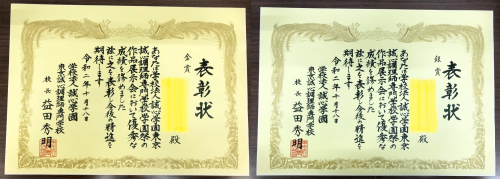 表彰状
金賞
殿
あなたは学校法人誠心学園東京
誠心調理師専門学校学園祭の
作品展示会において優秀な
成績を修めました
茲に之を表彰し今後の精進を
期待します
令和二年十月十八日
学校法人誠心学園
東京誠心調理師専門学校
校長 益田秀明
表彰状
銀賞
殿
あなたは学校法人誠心学園東京
誠心調理師専門学校学園祭の
作品展示会において優秀な
成績を修めました
茲に之を表彰し今後の精進を
期待します
令和二年十月十八日
学校法人誠心学園
東京誠心調理師専門学校
校長 益田秀明